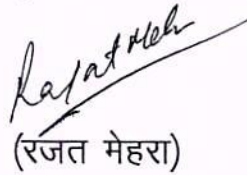 Rajat Meh
(रजत मेहरा)